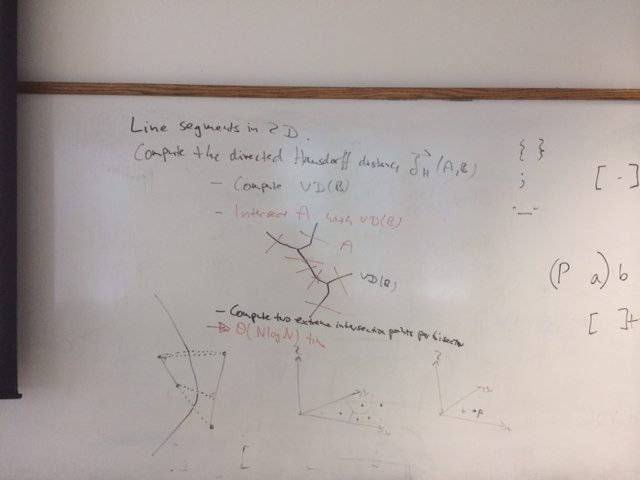 Line segments in 2D.
Compute the directed Hausdorff distance δH (A,B)
- Compute VD(B)
- Intersect A with VD(B)
A
VD(B)
- Compute two extreme intersection points per bisector
⇒ Θ(N log N) time
{ }
;
[ - ]
(P a) b
[ ]+
Z
Z
+ P
[